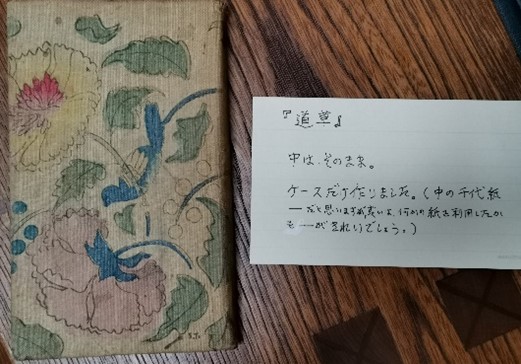 『道草』
中は、そのまま。
ケースだけ作りました。(中の千代紙
ーだと思いますが或いは、何かの紙を利用したか
も ーがきれいでしょう。)